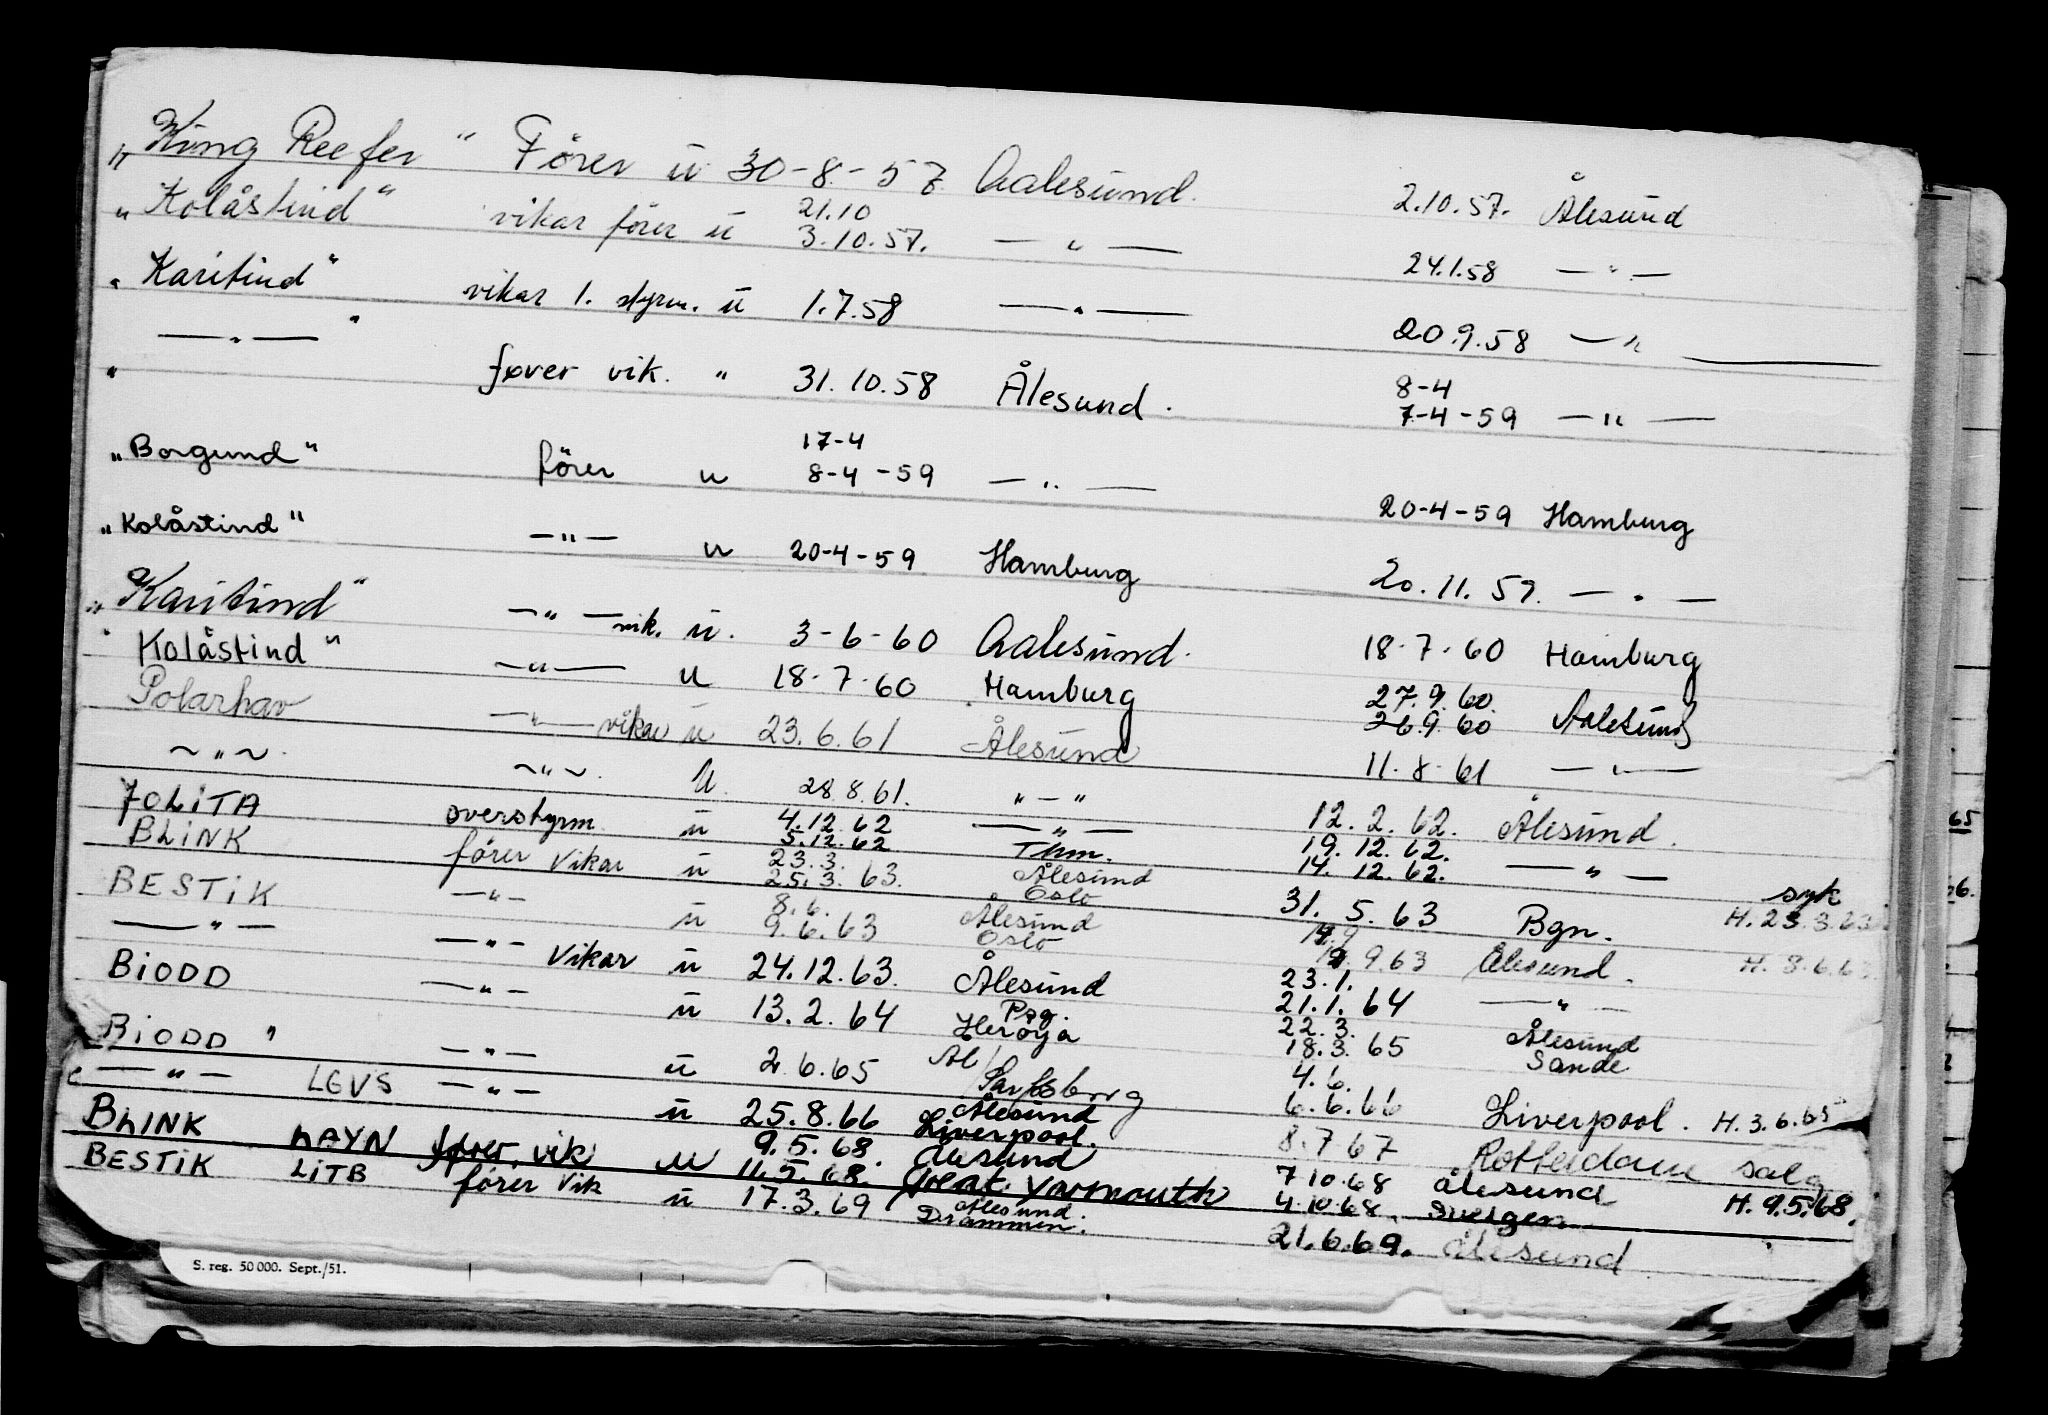 „King Reefer" Förer ū 30-8-57 Aalesund. 2.10.57. Ålesund
„Kolåstind" vikar förer ū 21.10 3.10.57. — " — 24.1.58 — " —
„Karitind" vikar 1. styrm. ū 1.7.58 — " — 20.9.58 — " —
— " — " fører vik. " 31.10.58 Ålesund. 8-4 7-4-59 — " —
„Borgund" förer u 17-4 8-4-59 — " — 20-4-59 Hamburg
„Kolåstind" — " — u 20-4-59 Hamburg 20.11.59. — " —
„Karitind" — " — vik. ū. 3-6-60 Aalesund. 18.7.60 Hamburg
" Kolåstind " — " — u 18.7.60 Hamburg 27.9.60. 26.9.60 Aalesund
Polarhav — " — vikar ū 23.6.61 Ålesund 11.8.61 — " —
~ " ~ ~ " ~ U. 28.8.61. " — " 12.2.62. Ålesund.
JOLITA overstyrm. ū 4.12.62 5.12.62 — " — Thm. 19.12.62. 14.12.62. — " —
BLINK förer Vikar ū 23.3. 25.3.63. Ålesund Oslo 31.5.63 Bgn. syk H. 23.3.63
BESTIK — " — ū 8.6. 9.6.63 Ålesund Oslo 9.63 Ålesund. H. 8.6.63
— " — — " — Vikar ū 24.12.63. Ålesund 23.1. 21.1.64 — " —
BIODD — " — ū 13.2.64 Psg. Herøya 22.3. 18.3.65 Ålesund Sande
BIODD " — " — ū 2.6.65 Ål/Sarpsborg 4.6. 6.6.66 Liverpool. H. 3.6.65
— " — LGVS — " — ū 25.8.66 Ålesund Liverpool. 8.7.67 Rotterdam salg
BLINK LAYN fører. vik u 9.5.68. 11.5.68. Ålesund Great Yarmouth 7.10.68 4.10.68. Ålesund Svelgen H. 9.5.68.
BESTIK LITB förer Vik ū 17.3.69 Ålesund Drammen. 21.6.69. Ålesund
S. reg. 50 000. Sept./51.
65